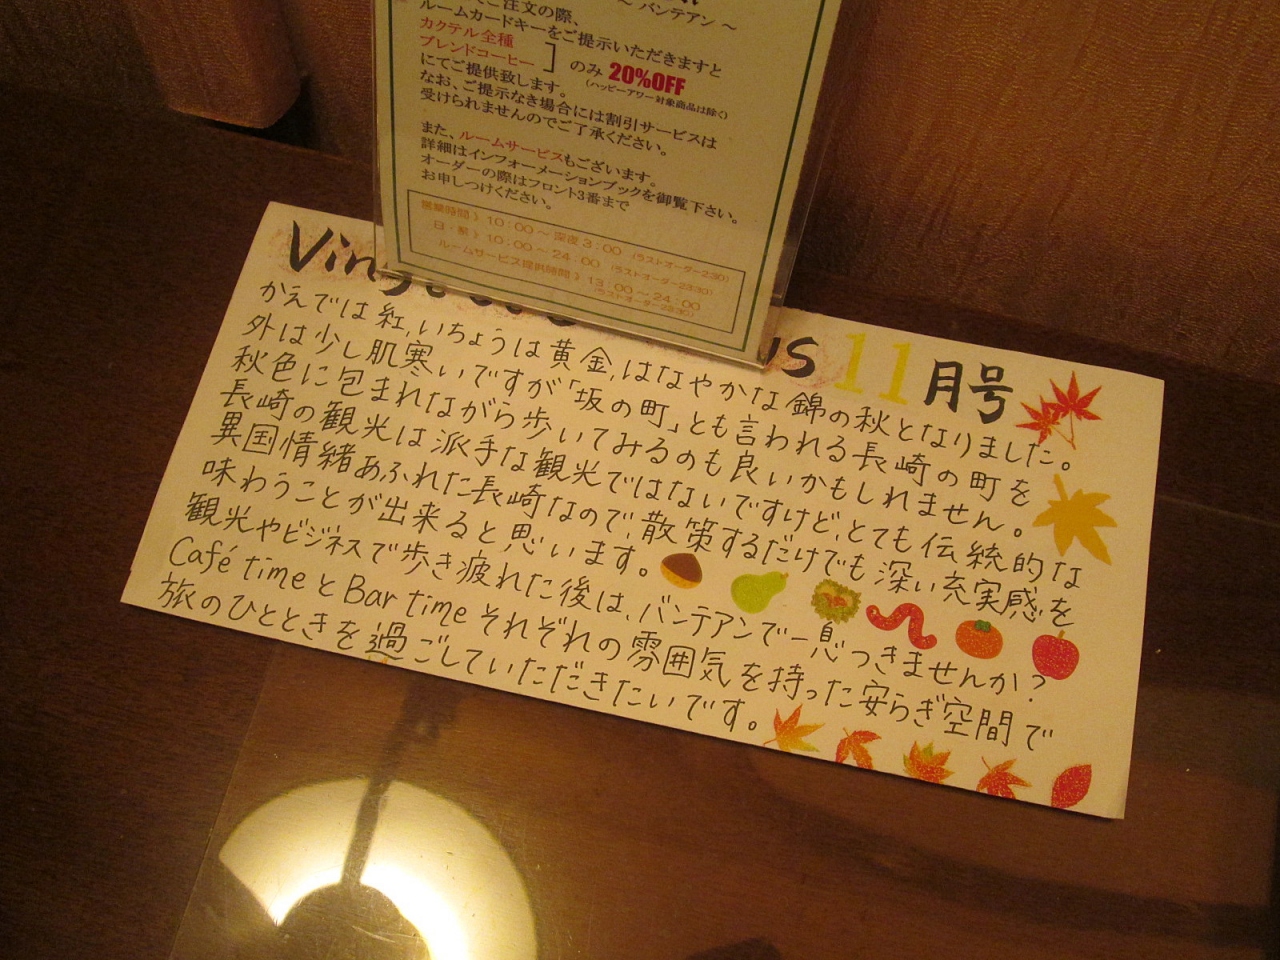 ～ バンテアン ～
ご注文の際、
ルームカードキーをご提示いただきますと
カクテル全種
ブレンドコーヒー
のみ 20%OFF
(ハッピーアワー対象商品は除く)
にてご提供致します。
なお、ご提示なき場合には割引サービスは
受けられませんのでご了承ください。
また、ルームサービスもございます。
詳細はインフォーメーションブックを御覧下さい。
オーダーの際はフロント3番まで
お申しつけください。
営業時間 》 10：00 ～ 深夜 3：00 (ラストオーダー2:30)
日・祭 》 10：00 ～ 24：00 (ラストオーダー23:30)
ルームサービス提供時間 》 13：00 ～ 24：00
(ラストオーダー23:30)
11月号
かえでは紅,いちょうは黄金,はなやかな錦の秋となりました。
外は少し肌寒いですが「坂の町」とも言われる長崎の町を
秋色に包まれながら歩いてみるのも良いかもしれません。
長崎の観光は派手な観光ではないですけど、とても伝統的な
異国情緒あふれた長崎なので、散策するだけでも深い充実感を
味わうことが出来ると思います。
観光やビジネスで歩き疲れた後は、バンテアンで一息つきませんか？
Café timeとBar timeそれぞれの雰囲気を持った安らぎ空間で
旅のひとときを過ごしていただきたいです。